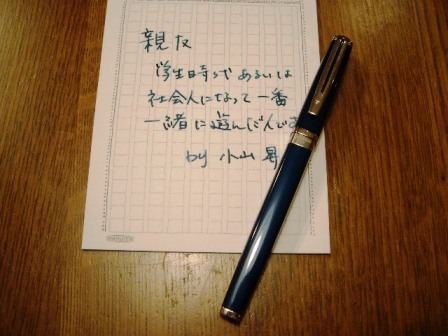 親友
学生時代あるいは
社会人になって一番
一緒に遊んだ人です
by 小山昇